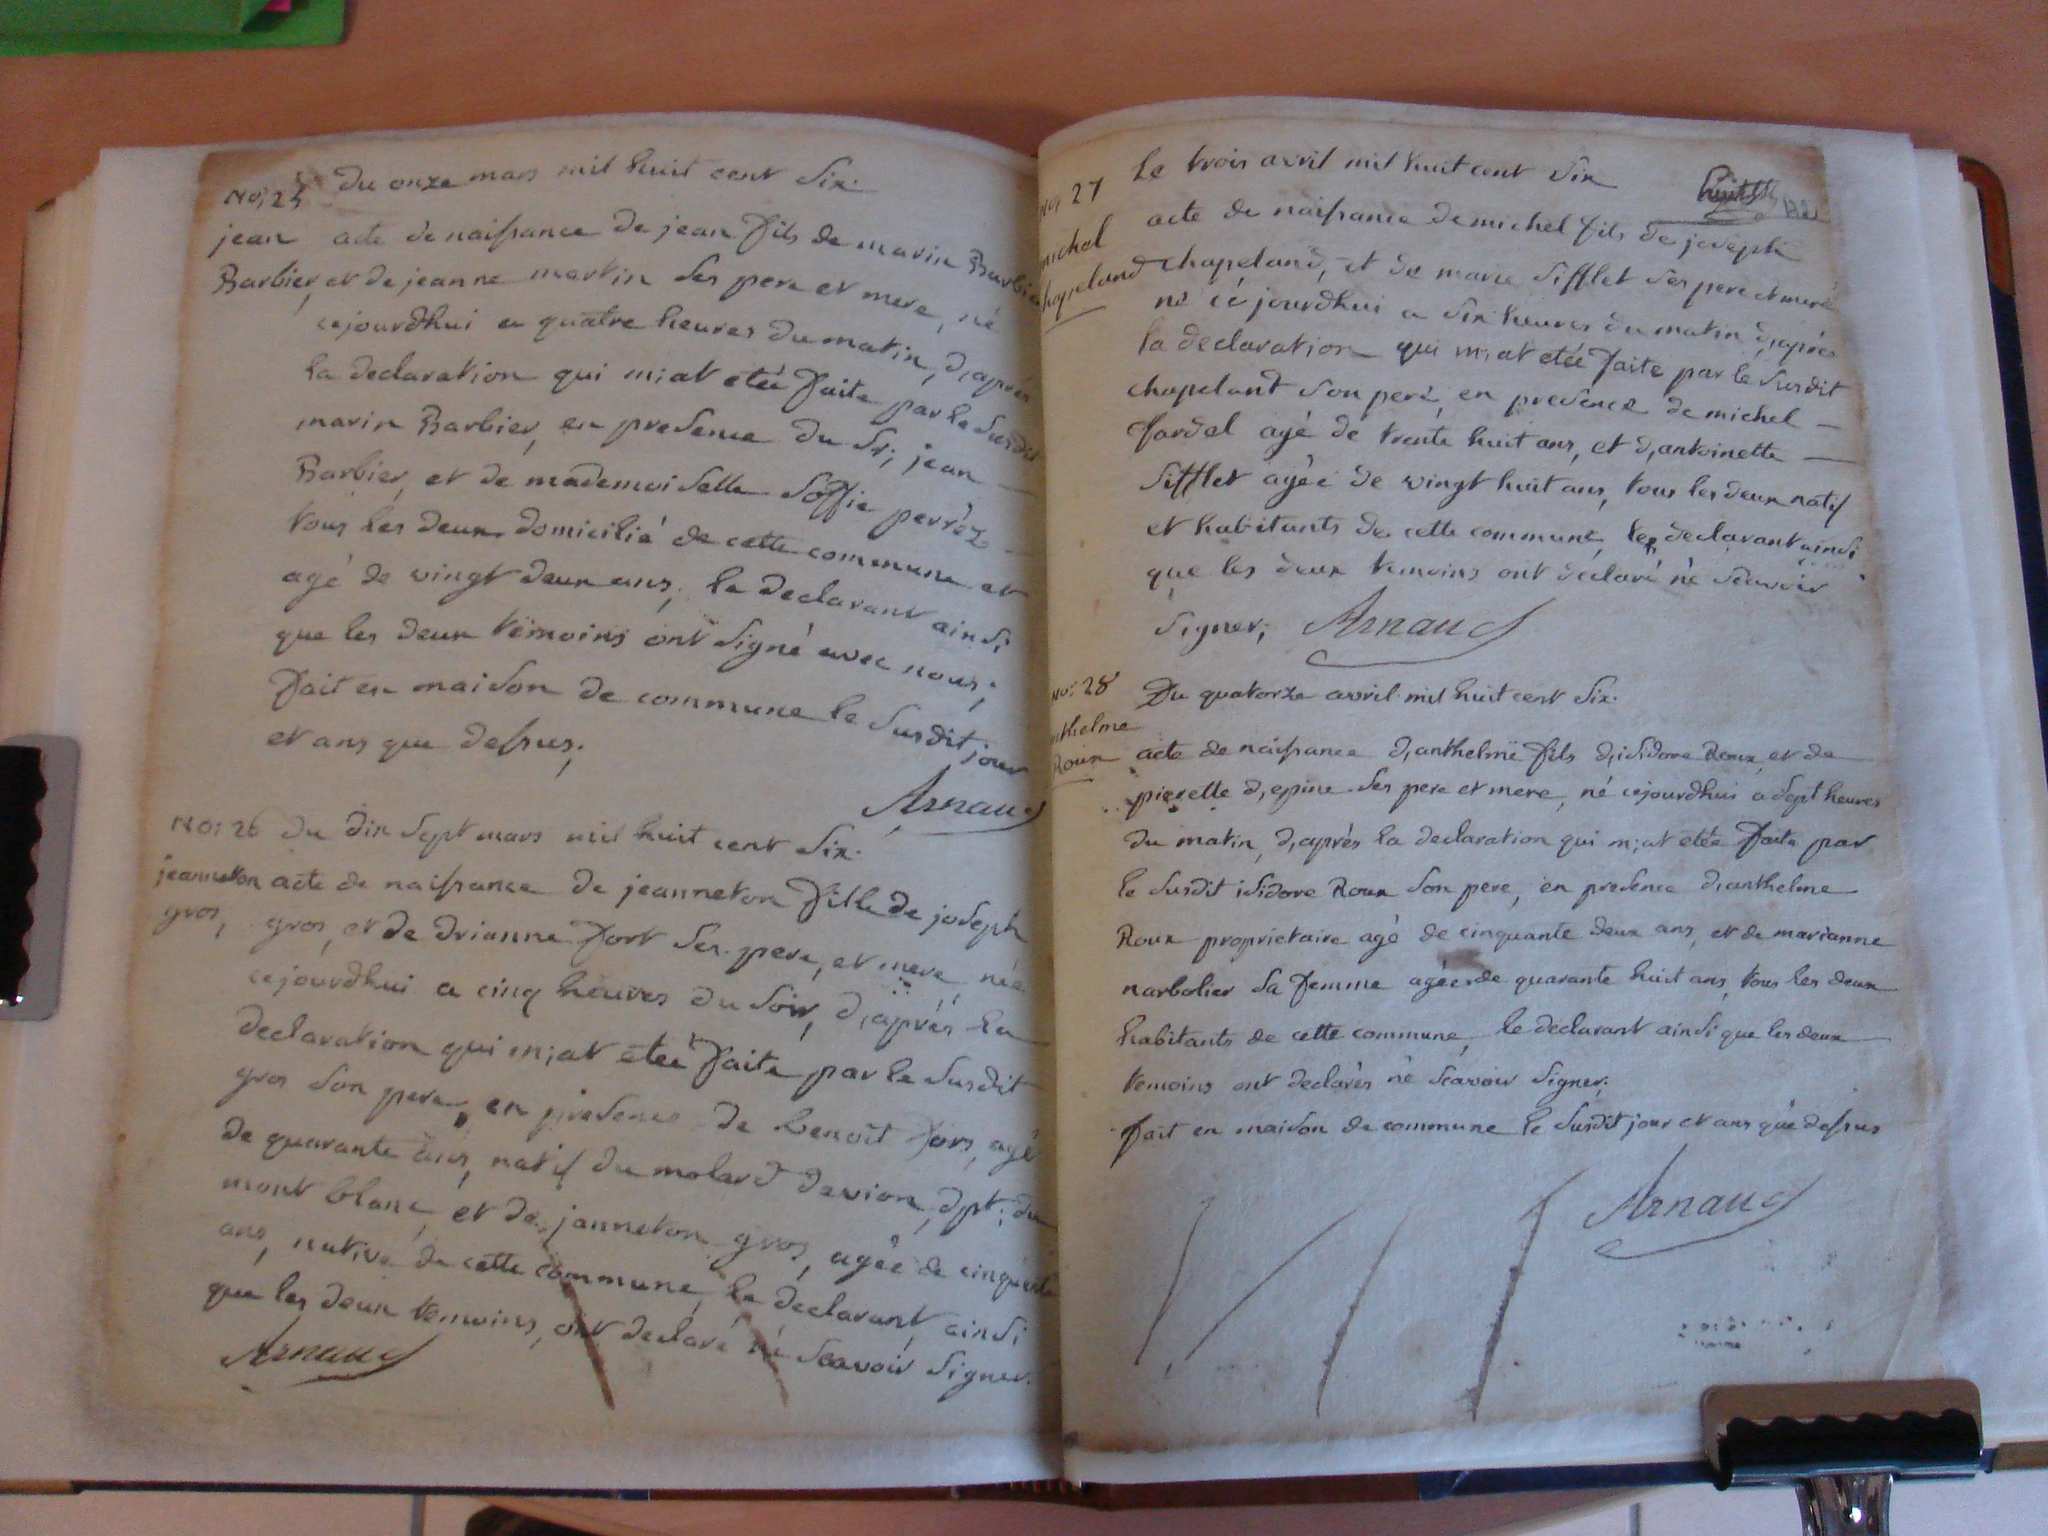 No; 25
jean
Barbier,
du onze mars mil huit cent Six.
acte de naissance de jean fils de marin Barbier
et de jeanne martin Ses pere et mere, né
cejourdhui a quatre heures du matin, d,aprés
la declaration qui m;at eteé faite par le Susdit
marin Barbier, en presence du Sr; jean
Barbier, et de mademoiselle Soffie perréz
tous les deux domicilié de cette commune et
agé de vingt deux ans, le declarant ainsi
que les deux témoins ont Signé avec nous;
fait en maison de commune le Susdit jour
et ans que dessus;
Arnaud
No; 26
jeanneton
gros,
du dix Sept mars mil huit cent Six.
acte de naissance de jeanneton fille de joseph
gros, et de drianne fort Ses pere, et mere née
cejourdhui a cinq heures du Soir, d,aprés la
declaration qui m;at eteé faite par le Susdit
gros Son pere, en presence de benoit fors, agé
de quarante ans, natif du molard davion, dpt; du
mont blanc, et de janneton gros, agée de cinquante
ans, native de cette commune, le declarant, ainsi
que les deux temoins, ont declaré né Scavoir Signer.
Arnaud
No; 27
michel
chapeland
Le trois avril mil huit cent Six
acte de naissance de michel fils de joseph
chapeland, et de marie Sifflet Ses pere et mere
né cé jourdhui a Six heures du matin d,aprés
la declaration qui m;at eteé faite par le Susdit
chapeland Son peré, en presence de michel
fardel agé de trente huit ans, et d,antoinette
Sifflet agéé de vingt huit ans, tous les deux natif
et habitants de cette commune, le declarant ainsi
que les deux temoins ont declaré né Scavoir
Signer; Arnaud
No; 28
nthelme
Roux
Du quatorze avril mil huit cent Six.
acte de naissance d,anthelme fils d,isidore Roux, et de
pierette d,epine Ses pere et mere, né cejourdhui a Sept heures
du matin, d,aprés la declaration qui m;at eteé faite par
le Susdit isidore Roux Son pere, en presence d,anthelme
Roux proprietaire agé de cinquante deux ans, et de marianne
narbolier Sa femme agée de quarante huit ans, tous les deux
habitants de cette commune, le declarant ainsi que les deux
temoins ont declarés né Scavoir Signer;
fait en maison de commune le Susdit jour et ans que dessus
Arnaud